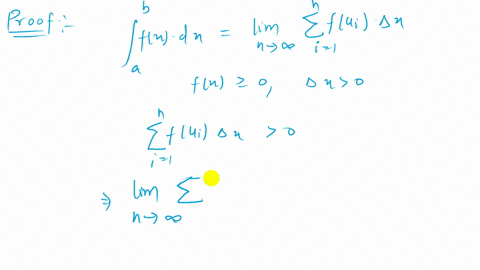 Proof :- ∫_a^b f(x)·dx = lim_{n→∞} Σ_{i=1}^n f(u_i)·Δx
f(x) ≥ 0, Δx > 0
Σ_{i=1}^n f(u_i) Δx > 0
⇒ lim_{n→∞} Σ